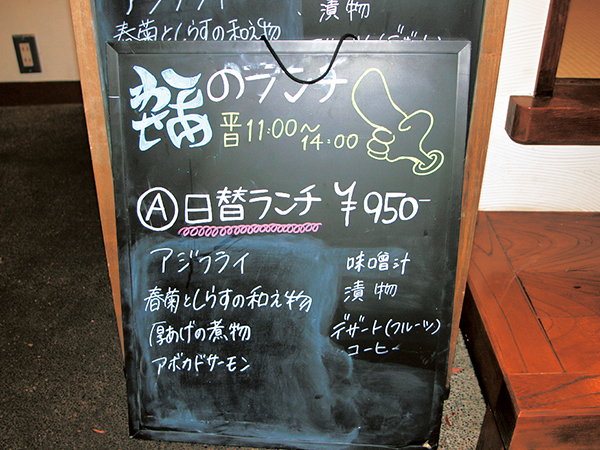 アジフライ
漬物
春菊としらすの和え物
のランチ
平日 11:00〜14:00
Ⓐ日替ランチ ¥950-
アジフライ
味噌汁
春菊としらすの和え物
漬物
厚あげの煮物
デザート(フルーツ)
アボカドサーモン
コーヒー